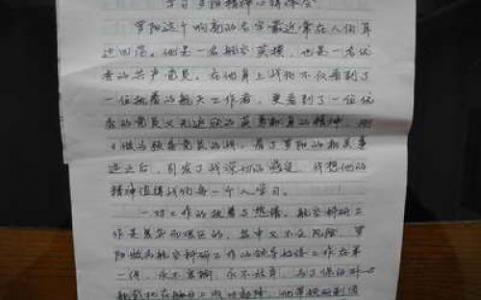 学习罗阳精神心得体会
罗阳这个响亮的名字最近常在人们耳
边回荡。他是一名航空英模,也是一名优
秀的共产党员。在他身上我们不仅看到了
一位执着的航天工作者,更看到了一位优
秀的党员
做为预备党员的我,看了罗阳的相关事
迹之后,引发了我深切的感触,我想他的
精神值得我们每一个人学习。
一、对工作的执着与热情。航空科研工
作是复杂而艰巨的,其中又不乏风险,罗
阳做为航空科研工作的领导始终工作在第
一线,永不言弃,永不放弃,为了保证